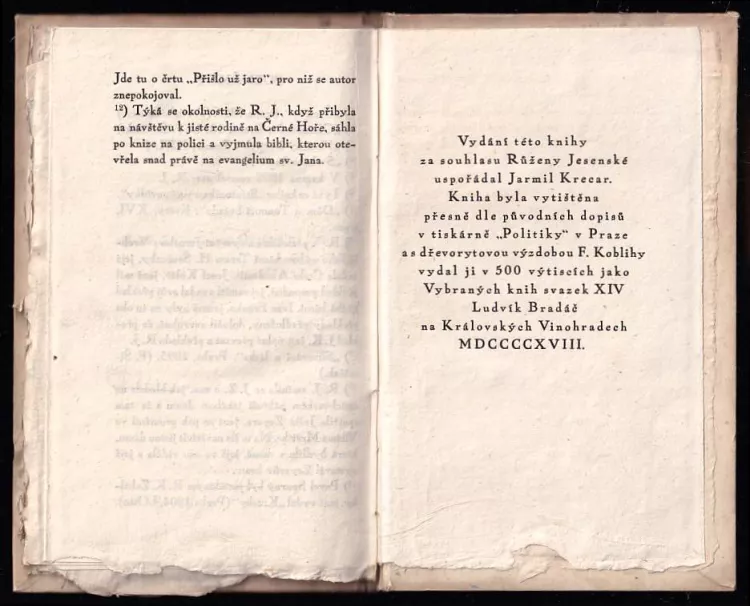 Jde tu o črtu „Přišlo už jaro“, pro niž se autor
znepokojoval.
12) Týká se okolnosti, že R. J., když přibyla
na návštěvu k jisté rodině na Černé Hoře, sáhla
po knize na polici a vyjmula bibli, kterou ote-
vřela snad právě na evangelium sv. Jana.
Vydání této knihy
za souhlasu Růženy Jesenské
uspořádal Jarmil Krecar.
Kniha byla vytištěna
přesně dle původních dopisů
v tiskárně „Politiky“ v Praze
a s dřevorytovou výzdobou F. Koblihy
vydal ji v 500 výtiscích jako
Vybraných knih svazek XIV
Ludvík Bradáč
na Královských Vinohradech
MDCCCCXVIII.